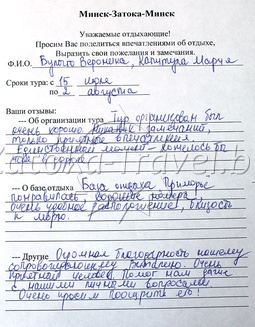 Минск-Затока-Минск
Уважаемые отдыхающие!
Просим Вас поделиться впечатлениями об отдыхе,
Выразить свои пожелания и замечания.
Ф.И.О. Вероника, Мария
Сроки тура: с 15 июля
по 2 августа
Ваши отзывы:
--- Об организации тура Тур организован был
очень хорошо. Никаких замечаний,
только приятные впечатления.
Единственный момент - хотелось бы
море
--- О базе отдыха База отдыха Приморье
понравилась, хорошие номера,
очень удобное расположение, близость
к морю.
--- Другие Огромная благодарность нашему
сопровождающему Виталию. Очень
приятный человек. Помог нам
с нашими личными вопросами.
Очень просим поощрить его!